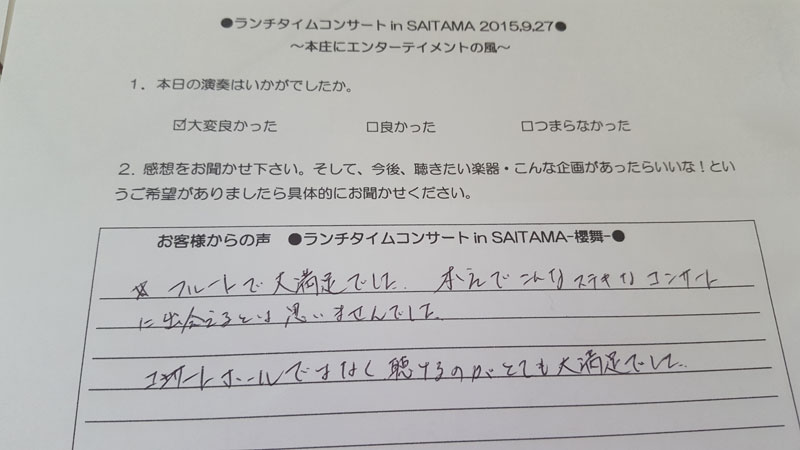 ●ランチタイムコンサート in SAITAMA 2015,9,27●
～本庄にエンターテイメントの風～
1. 本日の演奏はいかがでしたか。
☑大変良かった □良かった □つまらなかった
2. 感想をお聞かせ下さい。そして、今後、聴きたい楽器・こんな企画があったらいいな！とい
うご希望がありましたら具体的にお聞かせください。
お客様からの声 ●ランチタイムコンサート in SAITAMA-櫻舞-●
フルートで大満足でした. 本庄でこんなステキなコンサート
に出会えるとは思いませんでした.
コンサートホールではなく聴けるのがとても大満足でした.